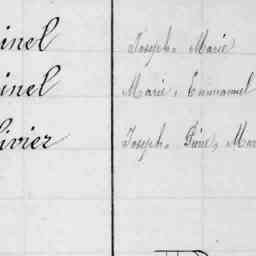 inel Joseph. Marie
inel Marie, Emmanuel
livier Joseph. Pierre, Mar